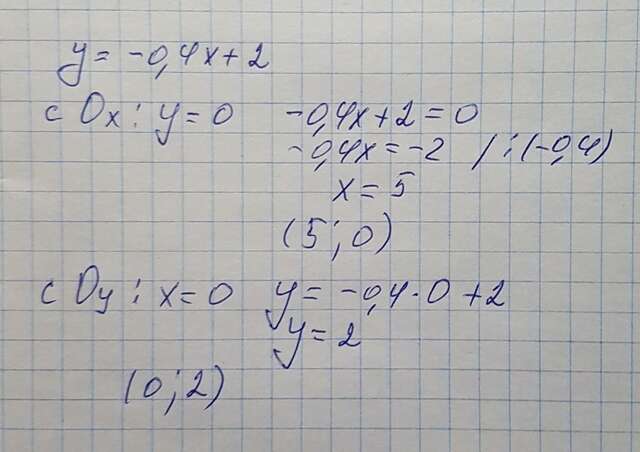 y = -0,4x + 2
с Ox : y = 0 -0,4x + 2 = 0
-0,4x = -2 / : (-0,4)
x = 5
(5 ; 0)
с Oy : x = 0 y = -0,4 · 0 + 2
y = 2
(0 ; 2)